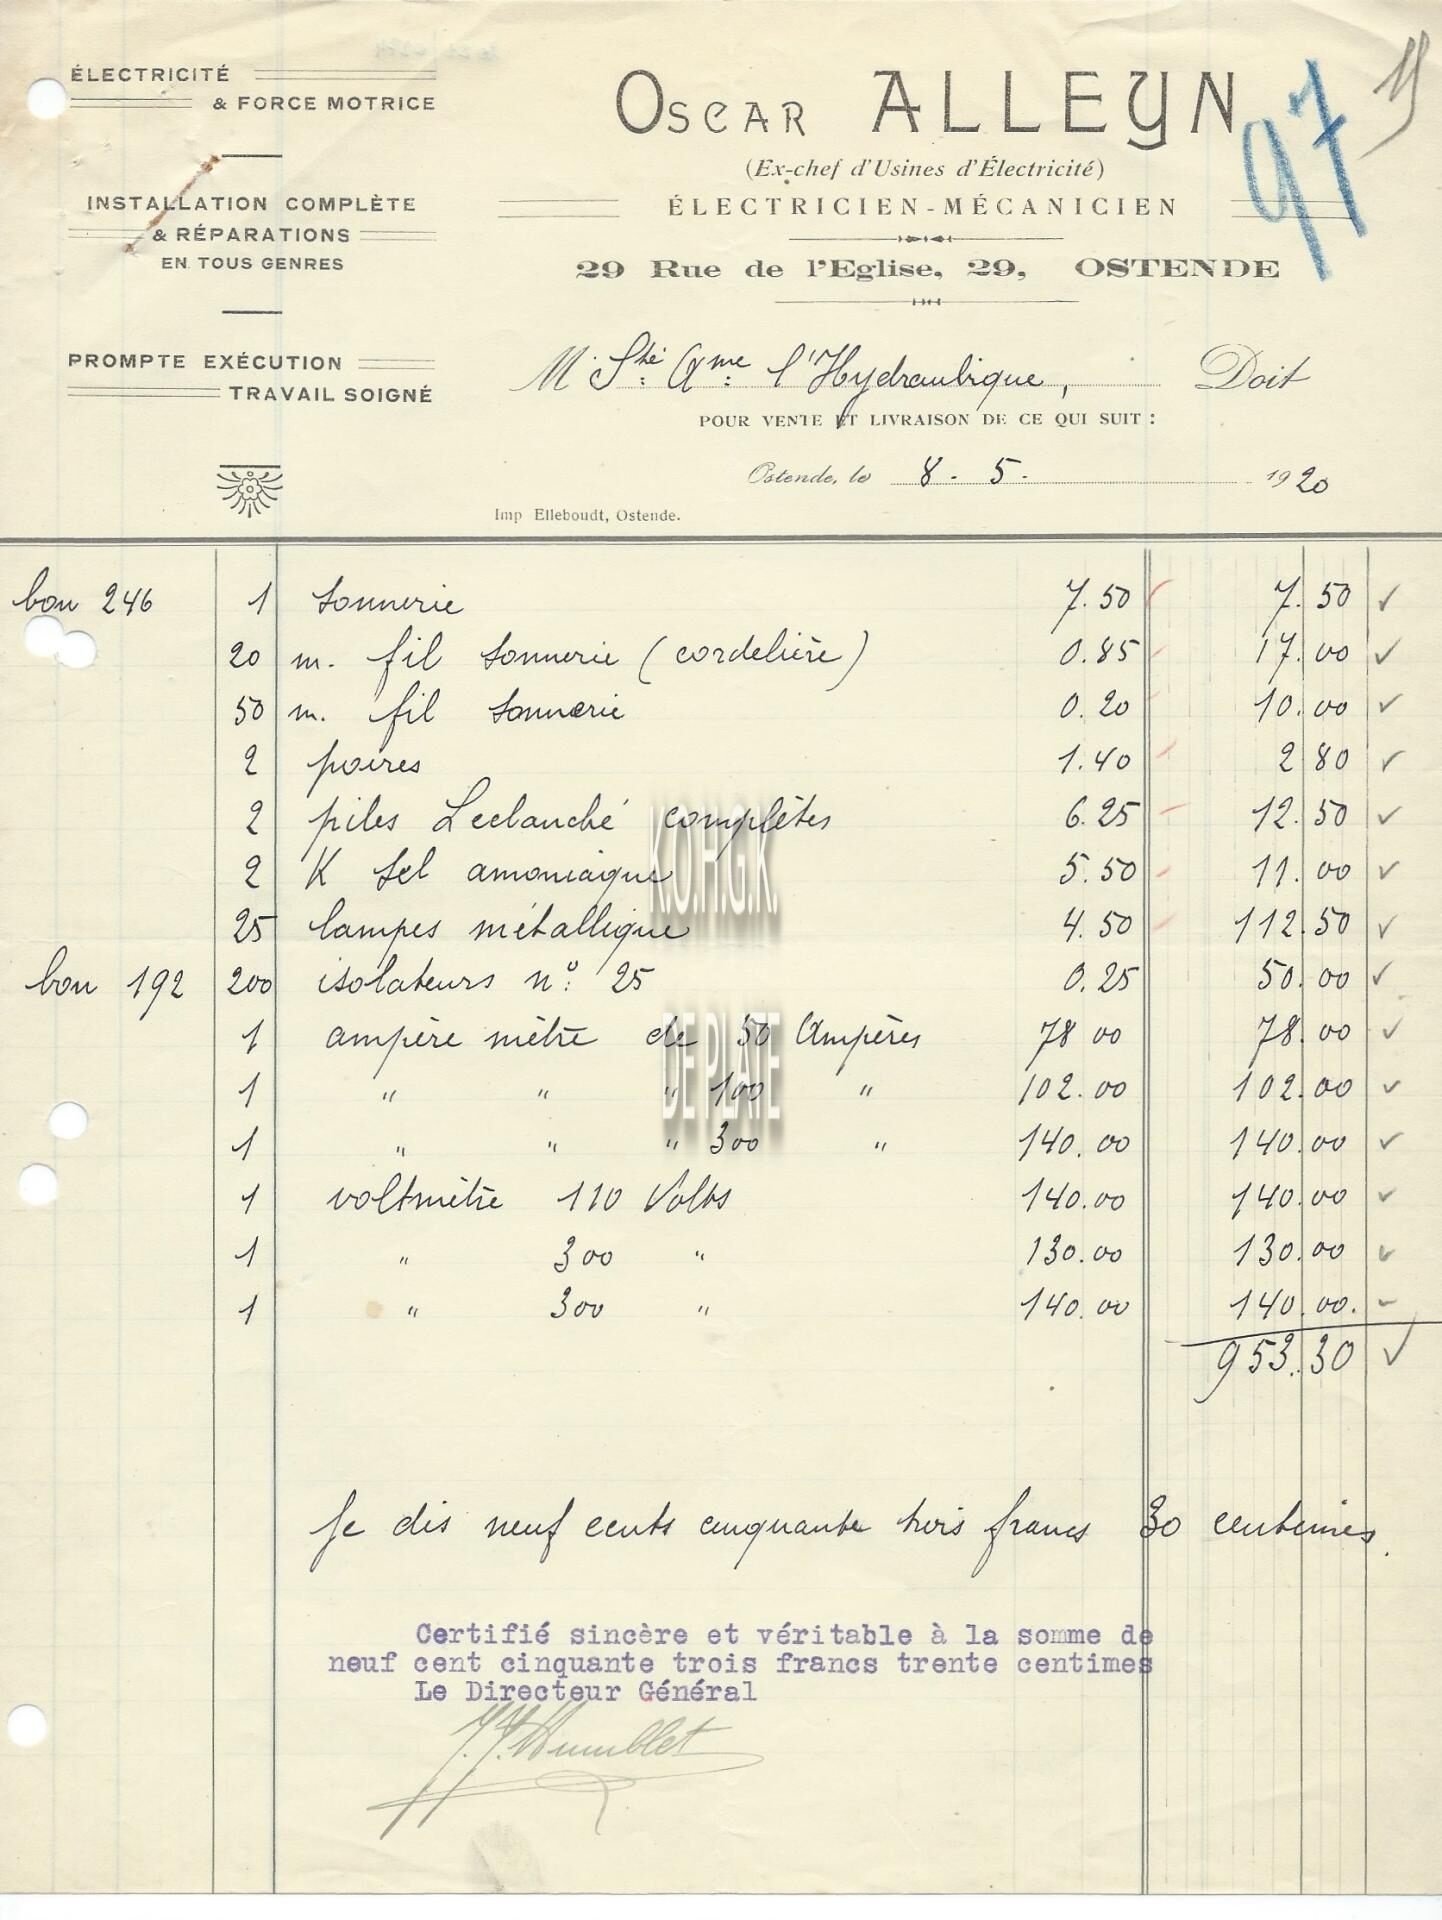 ÉLECTRICITÉ
& FORCE MOTRICE
INSTALLATION COMPLÈTE
& RÉPARATIONS
EN TOUS GENRES
PROMPTE EXÉCUTION
TRAVAIL SOIGNÉ
OSCAR ALLEYN
97
(Ex-chef d'Usines d'Électricité)
ÉLECTRICIEN-MÉCANICIEN
29 Rue de l'Eglise, 29, OSTENDE
M Sté Ame l'Hydraulique, Doit
POUR VENTE ET LIVRAISON DE CE QUI SUIT :
Ostende, le 8. 5. 1920
Imp Elleboudt, Ostende.
bon 246 1 sonnerie 7.50 7.50
20 m. fil sonnerie (cordelière) 0.85 17.00
50 m. fil sonnerie 0.20 10.00
2 poires 1.40 2 80
2 piles Leclanché complètes 6.25 12.50
2 K sel amoniaque 5.50 11.00
25 lampes métallique 4.50 112.50
bon 192 200 isolateurs n° 25 0.25 50.00
1 ampère mètre de 50 Ampères 78 00 78.00
1 " " " 100 " 102.00 102.00
1 " " " 300 " 140.00 140.00
1 voltmètre 110 Volts 140.00 140.00
1 " 300 " 130.00 130.00
1 " 300 " 140.00 140.00.
953.30
Je dis neuf cents cinquante trois francs 30 centimes.
Certifié sincère et véritable à la somme de
neuf cent cinquante trois francs trente centimes
Le Directeur Général
K.O.H.G.K.
DE PLATE